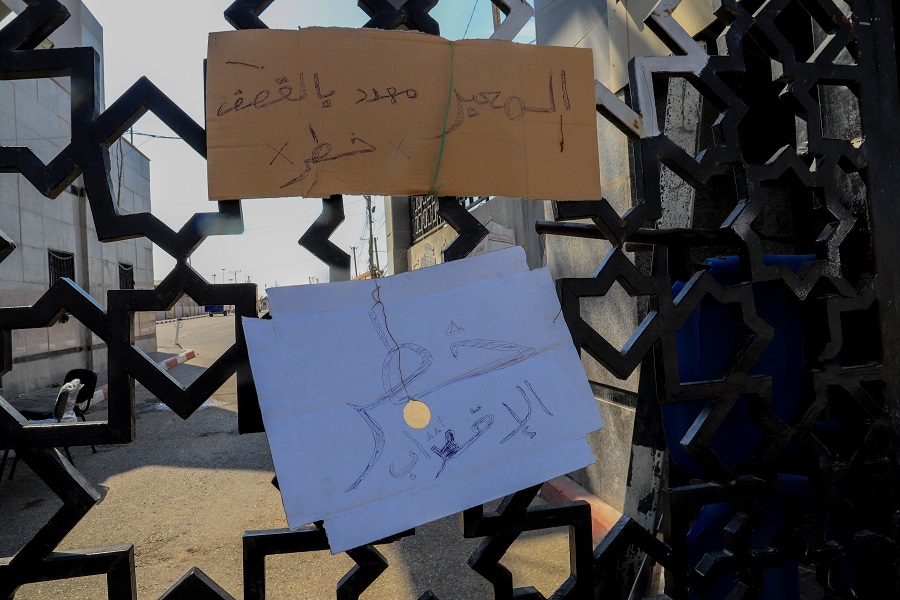 المعبر مهدد بالقصف
× خطر ×
خطر
الإقتراب